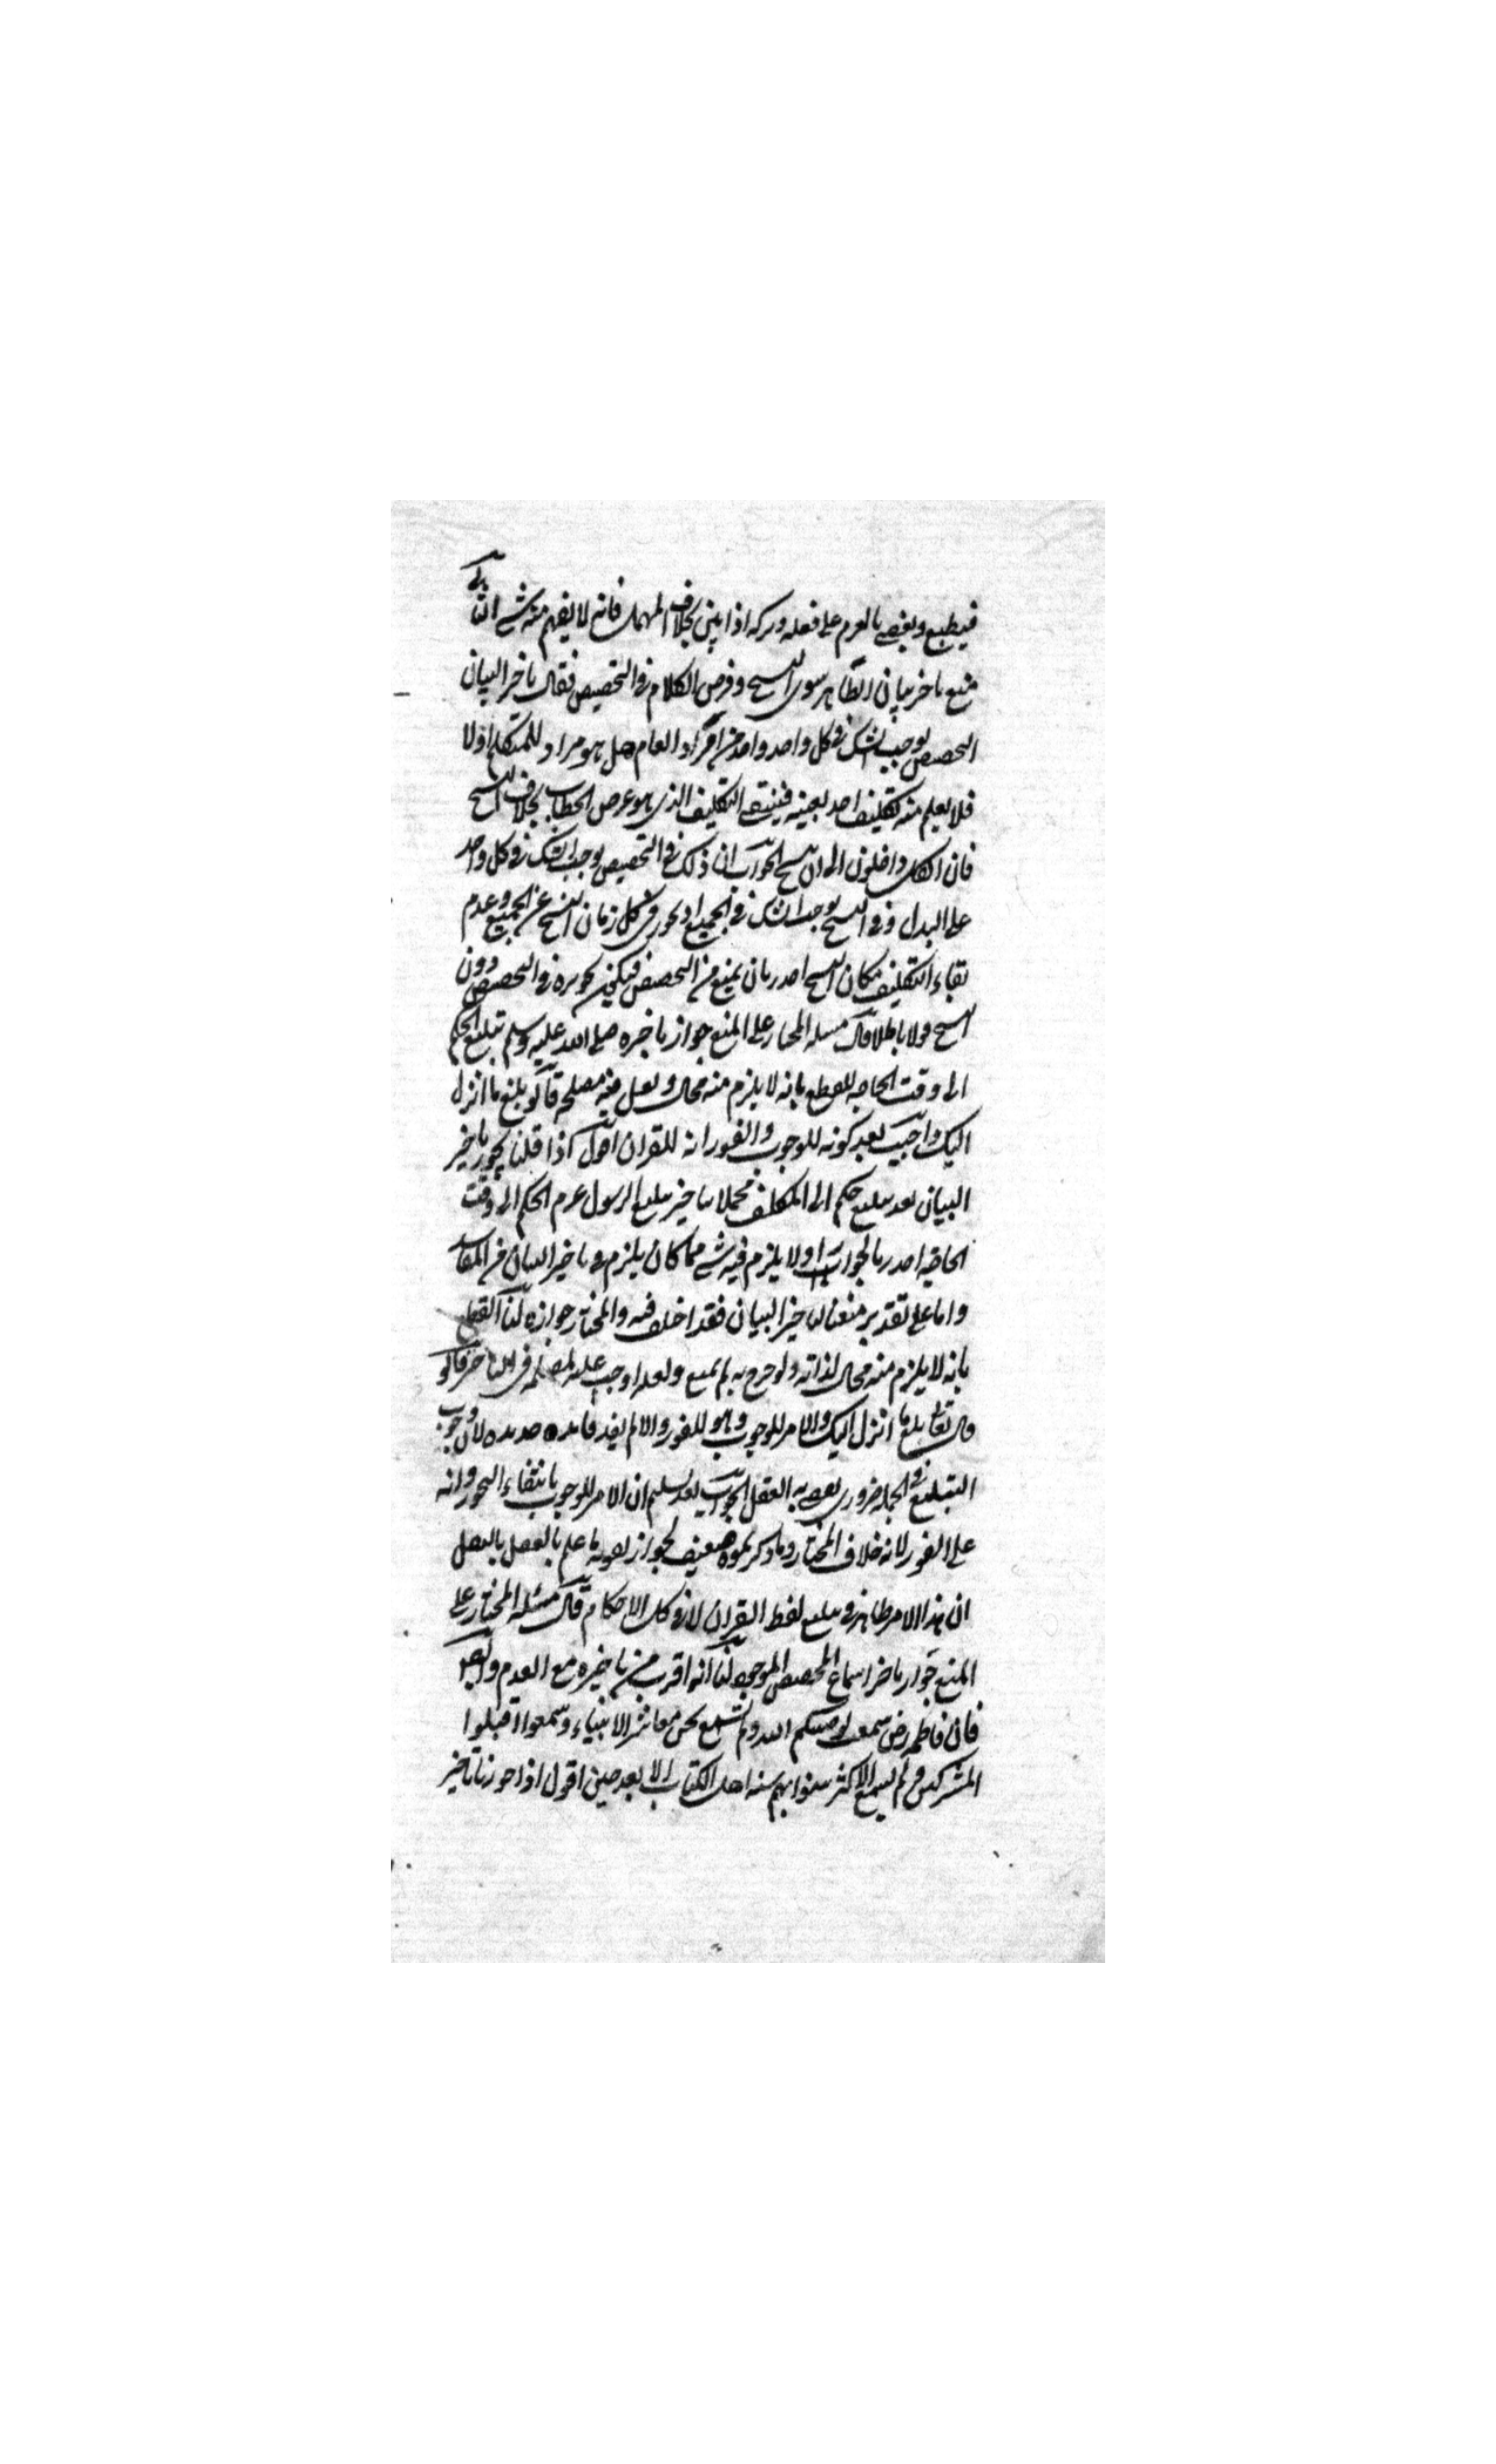 فيطيع ويعصى بالعزم على فعله وتركه اذا بين بخلاف المهمل فانه لا يفهم منه شئ الثا
منع تاخير بيان الظاهر سوى النسخ وفرض الكلام فى التخصيص فقال تاخير البيان
التخصيص يوجب الشك فى كل واحد واحد من افراد العام هل هو مراد للمتكلم او لا
فلا يعلم منه تكليف احد بعينه فينتفى التكليف الذى هو غرض الخطاب بخلاف النسخ
فان الكل داخلون الى ان ينسخ الجواب ان ذلك فى التخصيص يوجب الشك فى كل واحد
على البدل وفى النسخ يوجب الشك فى الجميع اذ يجوز فى كل زمان النسخ عن الجميع وعدم
بقاء التكليف فكان النسخ اجدر بان يمنع من التخصيص فيكون تجويزه فى التخصيص دون
النسخ قولا باطلا قال مسئلة المختار على المنع جواز تاخيره صلى الله عليه وسلم تبليغ الحكم
الى وقت الحاجة للقطع بانه لا يلزم منه محال ولعل فيه مصلحة قالوا بلغ ما انزل
اليك واجيب بعد كونه للوجوب والفور انه للقران اقول اذا قلنا يجوز تاخير
البيان بعد تبليغ حكم الى المكلف مجملا فتاخير تبليغ الرسول عم الحكم الى وقت
الحاجة اجدر بالجواز اذ لا يلزم فيه شئ مما كان يلزم فى تاخير البيان من المفاسد
واما على تقدير منعنا لتاخير البيان فقد اختلف فيه والمختار جوازه لنا القطع
بانه لا يلزم منه محال لذاته ولو صرح به لم يمنع ولعله اوجب عليه لمصلحة فى التاخير قالوا
قال تعالى بلغ ما انزل اليك والامر للوجوب وهو للفور والا لم يفد فائدة جديدة لان وجوب
التبليغ فى الجملة ضرورى يقضى به العقل الجواب بعد تسليم ان الامر للوجوب بانتفاء التجوز وانه
على الفور لانه خلاف المختار وما ذكرتموه ضعيف لجواز تقوية ما علم بالعقل بالنقل
ان هذا الامر ظاهر فى تبليغ لفظ القران لا فى كل الاحكام قال مسئلة المختار على
المنع جواز تاخير اسماع المخصص الموجود لنا انه اقرب من تاخيره مع العدم وايضا
فان فاطمة رض سمعت يوصيكم الله ولم تسمع نحن معاشر الانبياء وسمعوا اقتلوا
المشركين ولم يسمع الاكثر سنوا بهم سنة اهل الكتاب الا بعد حين اقول اذا جوزنا تاخير